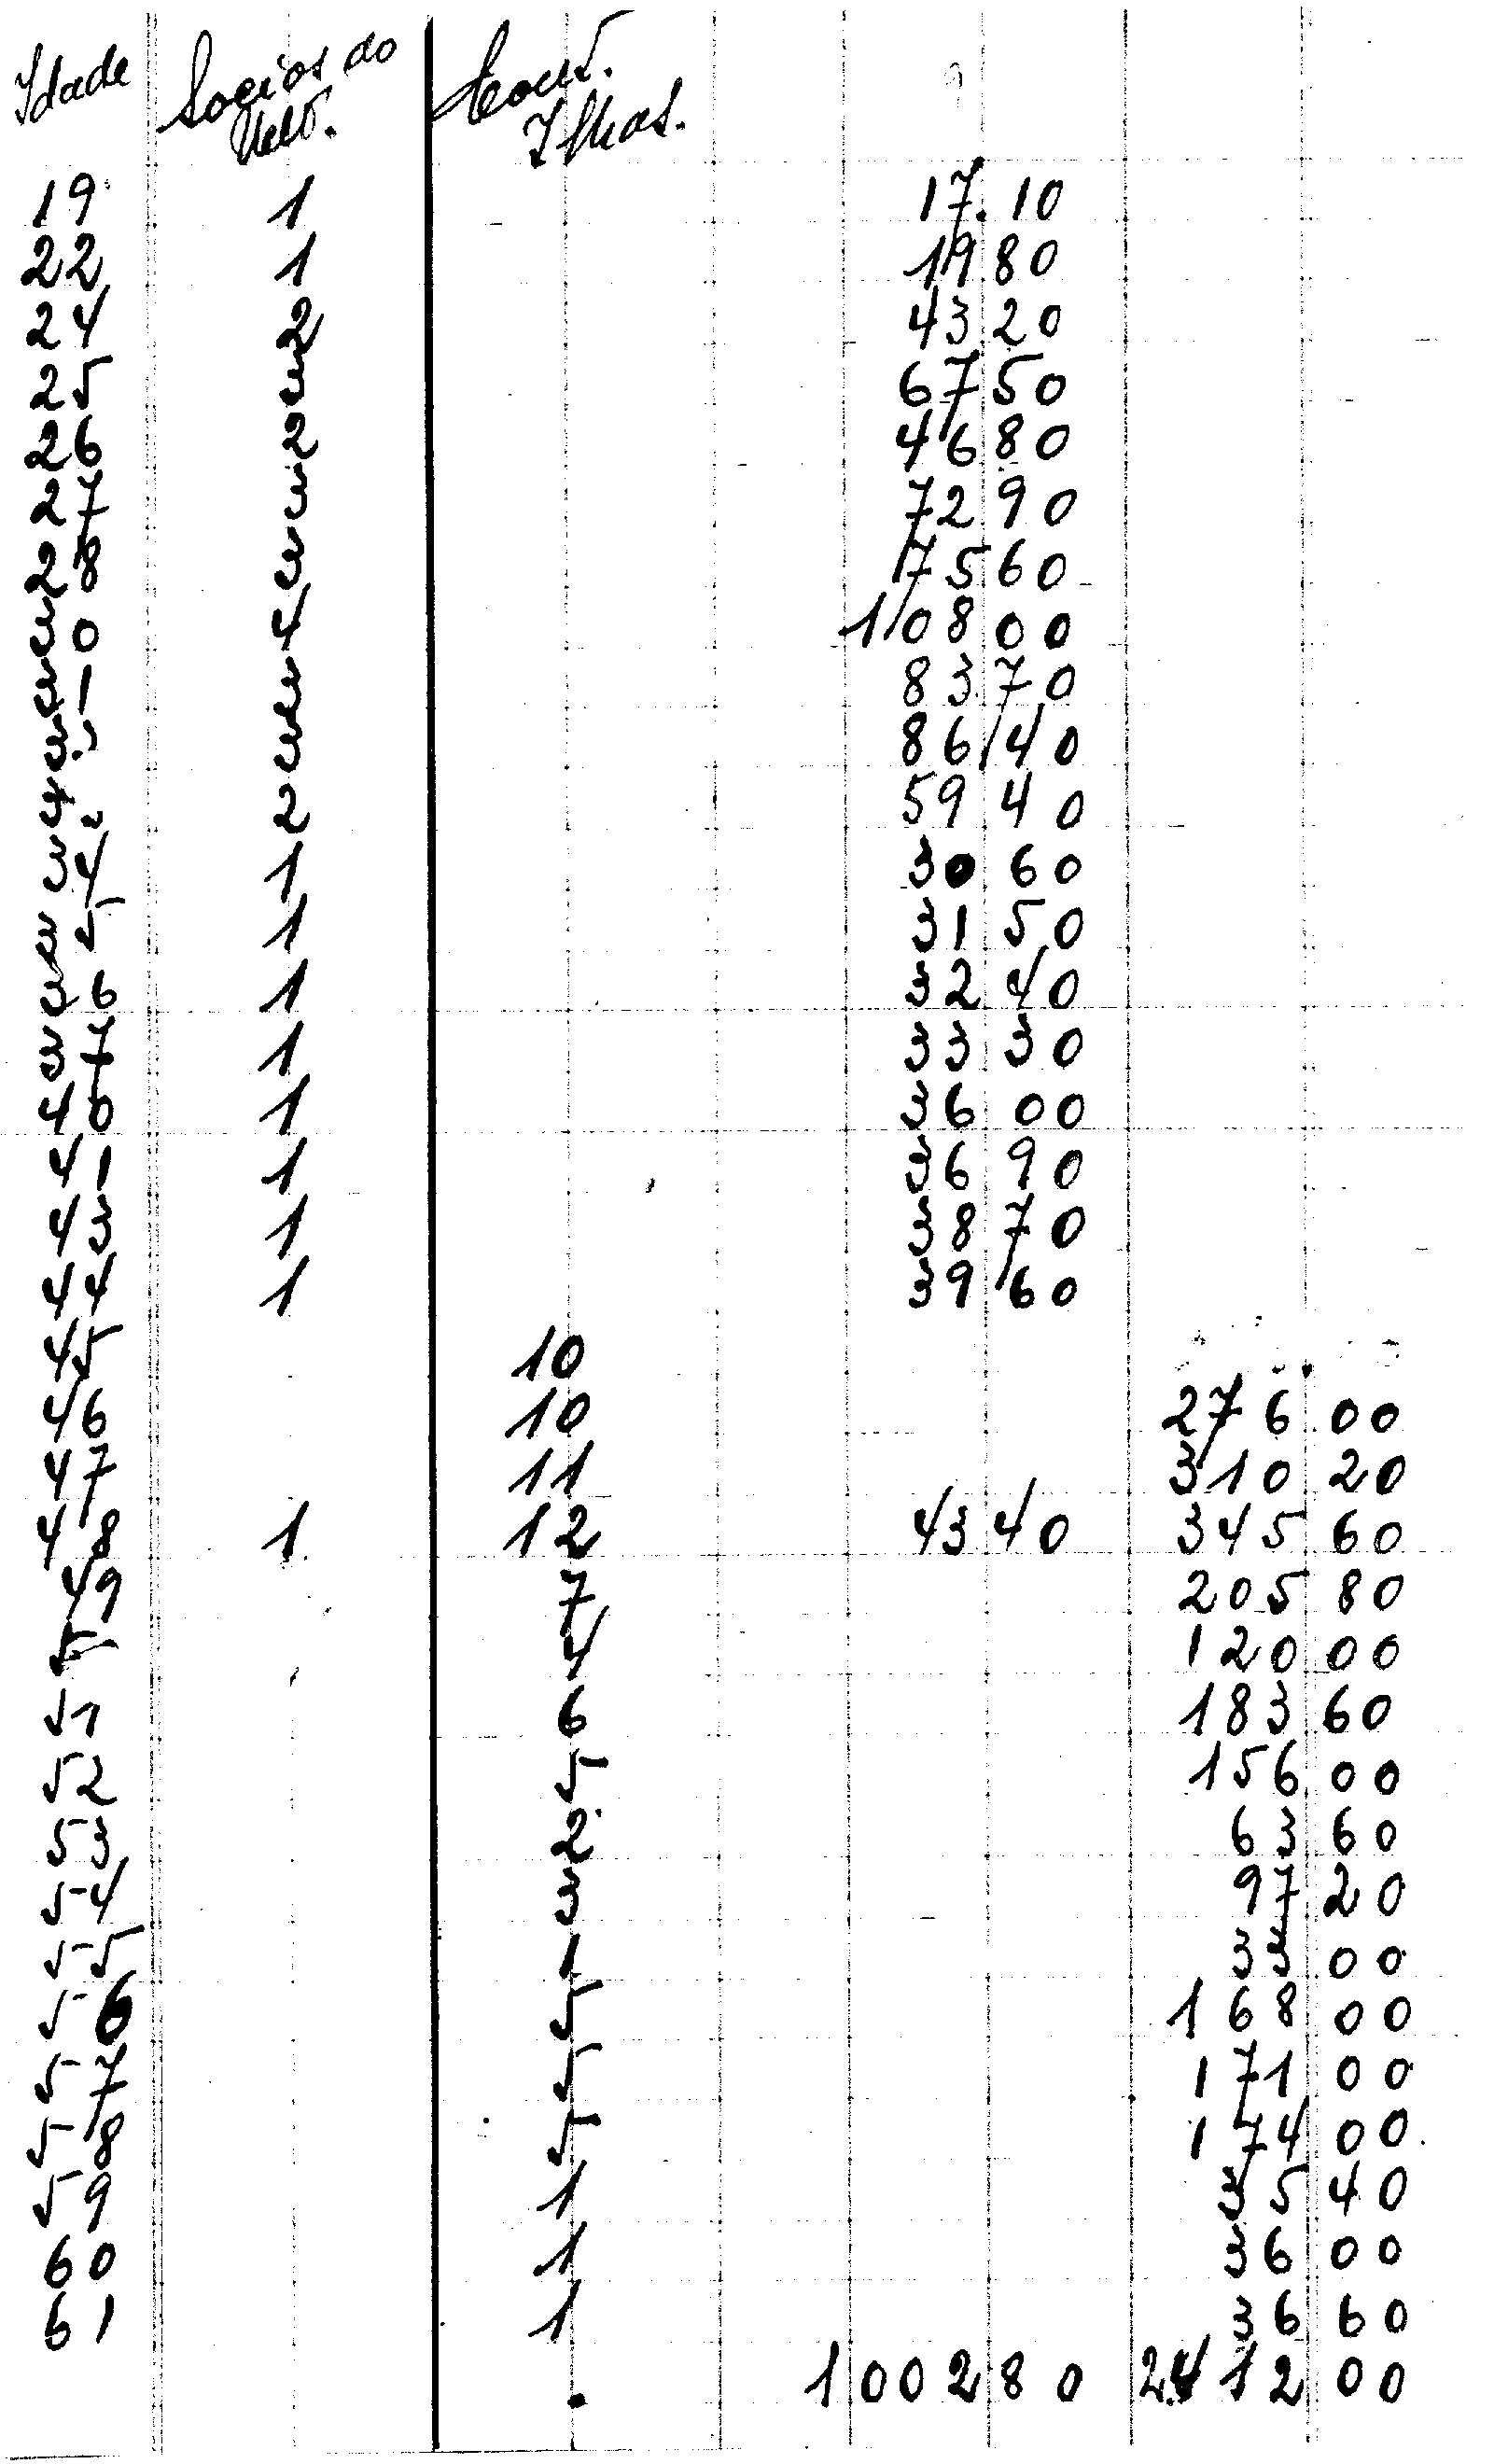 Idade Socios do
Ilhas.
19 1 17.10
22 1 19 80
24 2 43 20
25 3 67 50
26 2 46 80
27 3 72 90
28 3 75 60
30 4 108 00
31 3 83 70
3 86 40
2 59 40
34 1 30 60
35 1 31 50
36 1 32 40
37 1 33 30
40 1 36 00
41 1 36 90
43 1 38 70
44 1 39 60
45 10
46 10 276 00
47 11 310 20
48 1 12 43 40 345 60
49 7 205 80
4 120 00
51 6 183 60
52 5 156 00
53 2 63 60
54 3 97 20
55 1 33 00
56 5 168 00
57 5 171 00
58 5 174 00
59 1 35 40
60 1 36 00
61 1 36 60
1002 80 2412 00